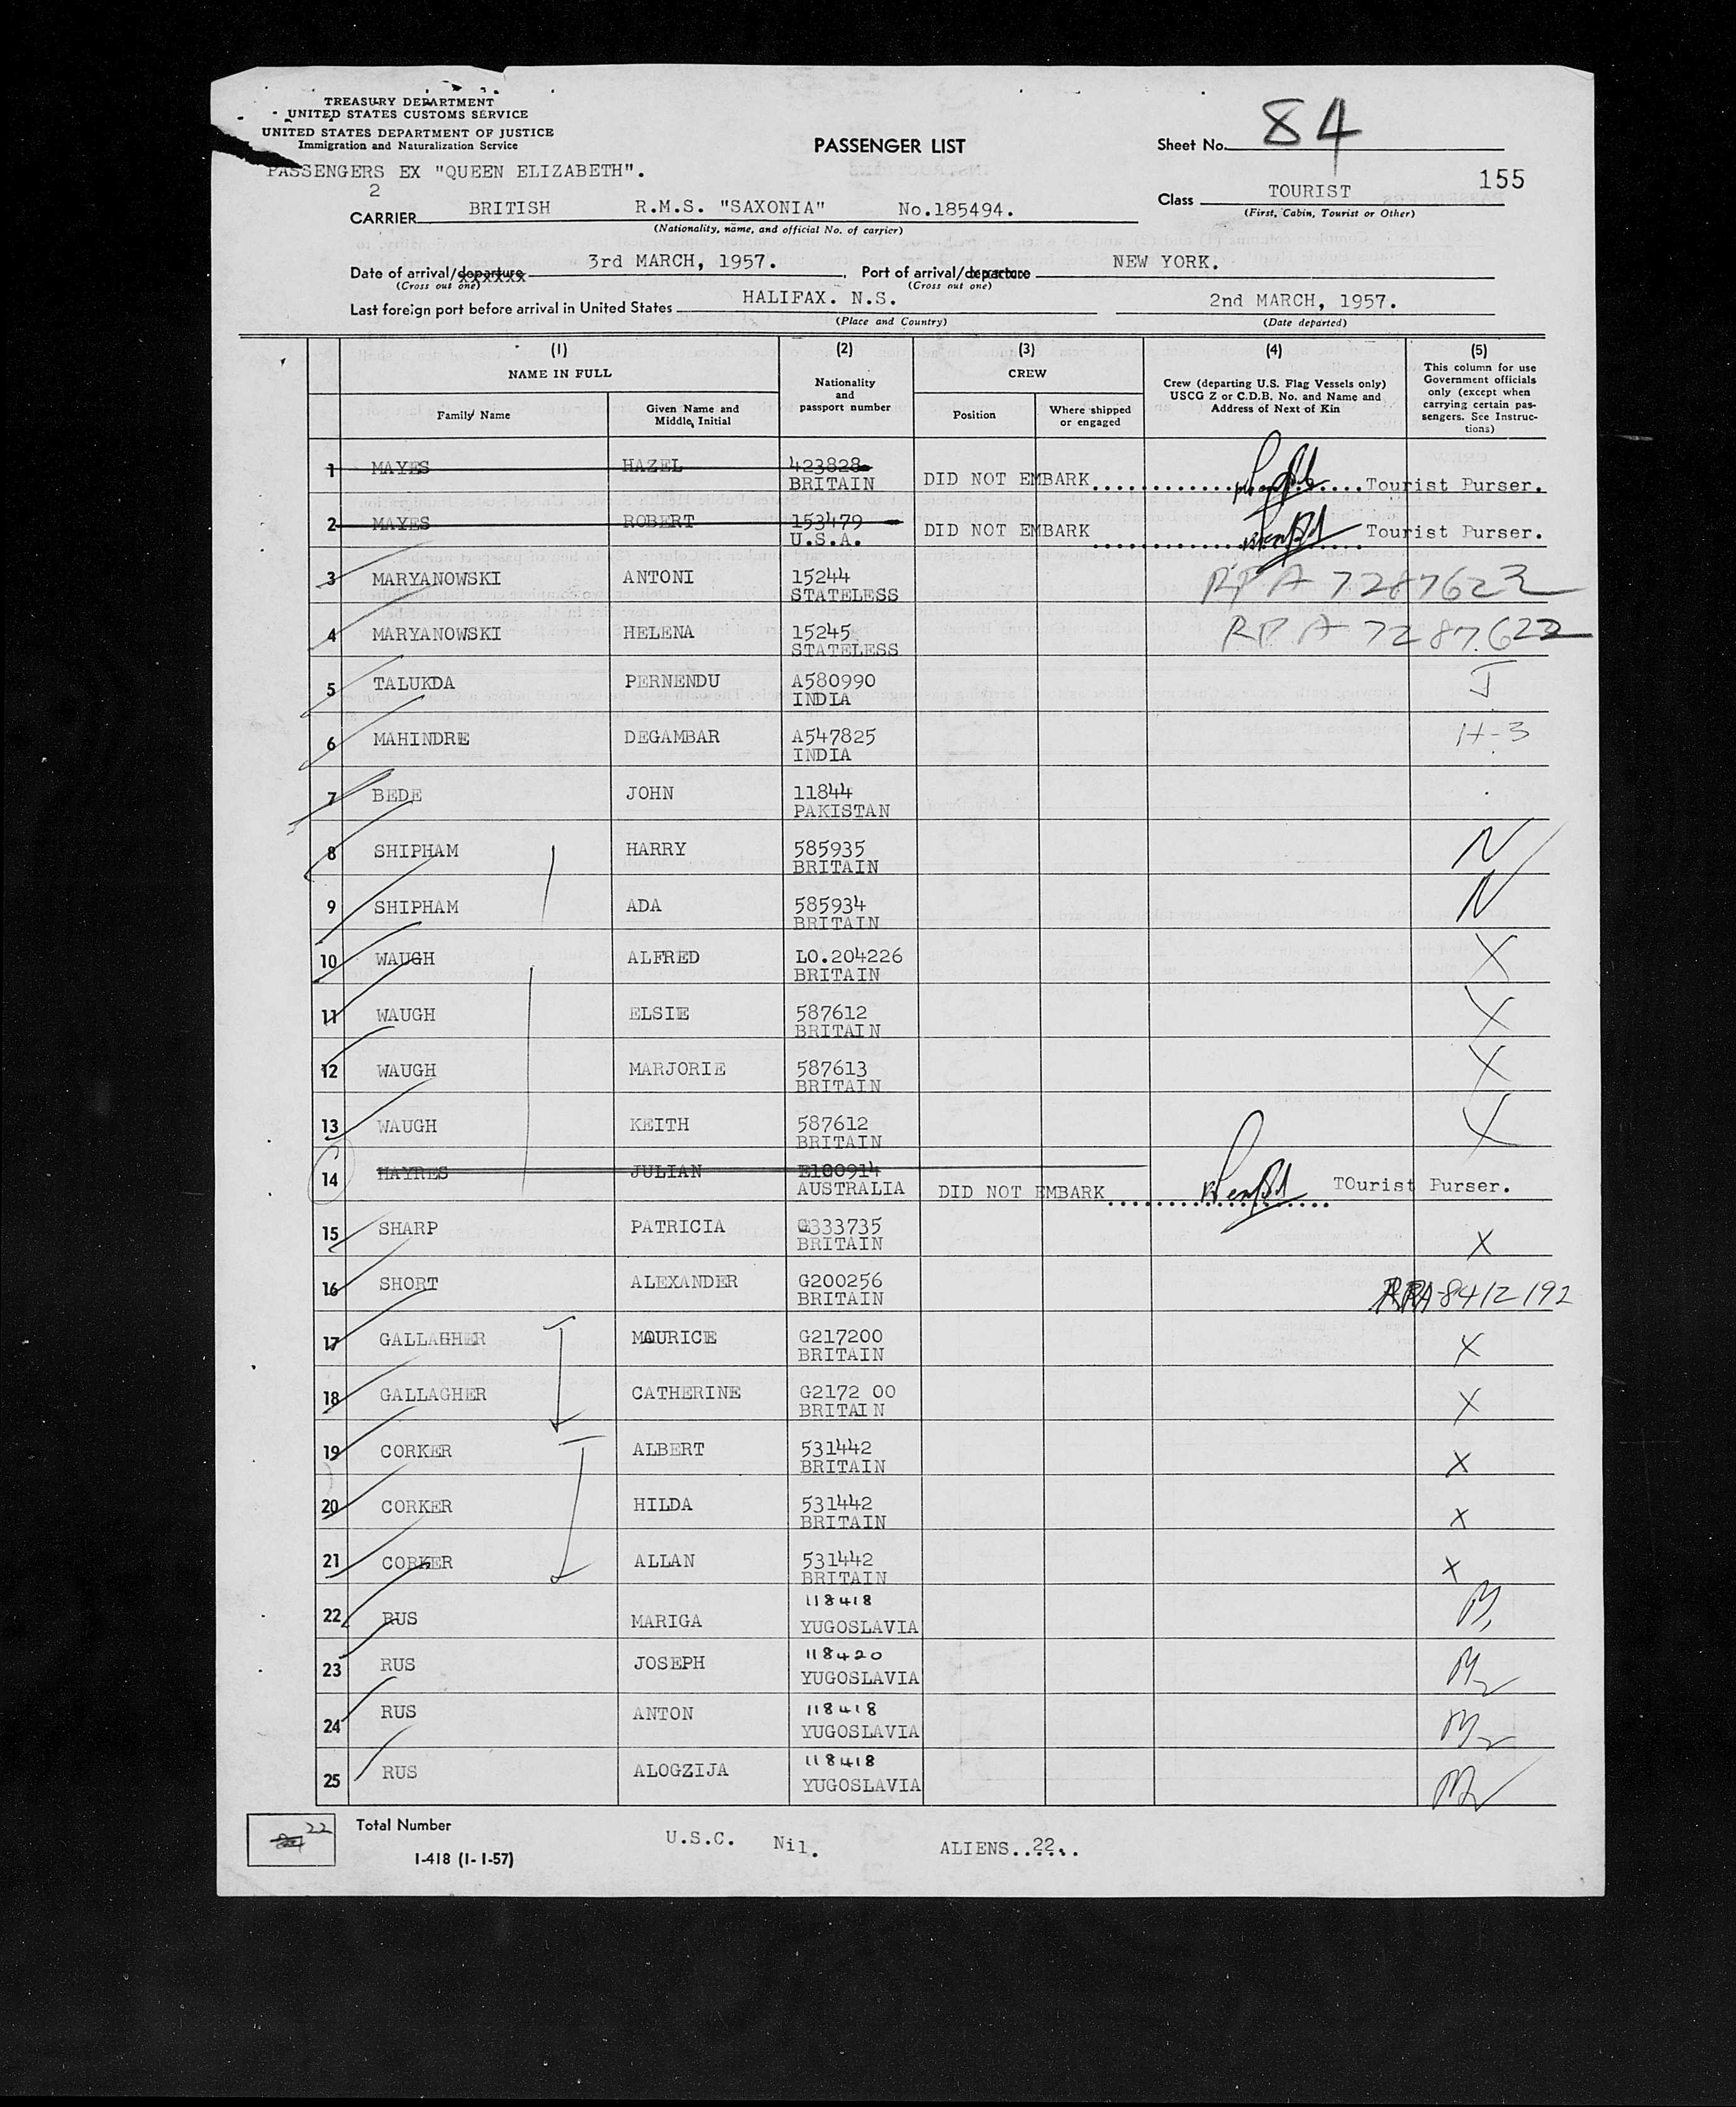 TREASURY DEPARTMENT
UNITED STATES CUSTOMS SERVICE
UNITED STATES DEPARTMENT OF JUSTICE
Immigration and Naturalization Service
PASSENGER LIST
Sheet No. 84
PASSENGERS EX "QUEEN ELIZABETH".
155
2
Class TOURIST
(First, Cabin, Tourist or Other)
CARRIER BRITISH R.M.S. "SAXONIA" No.185494.
(Nationality, name, and official No. of carrier)
Date of arrival/departure 3rd MARCH, 1957. Port of arrival/departure NEW YORK.
(Cross out one) (Cross out one)
Last foreign port before arrival in United States HALIFAX. N.S. 2nd MARCH, 1957.
(Place and Country) (Date departed)
(1) (2) (3) (4) (5)
NAME IN FULL
Family Name
Given Name and Middle Initial
Nationality and passport number
CREW
Position
Where shipped or engaged
Crew (departing U.S. Flag Vessels only) USCG Z or C.D.B. No. and Name and Address of Next of Kin
This column for use Government officials only (except when carrying certain passengers. See Instructions)
1 MAYES HAZEL 423828
BRITAIN DID NOT EMBARK Tourist Purser.
2 MAYES ROBERT 153479
U.S.A. DID NOT EMBARK Tourist Purser.
3 MARYANOWSKI ANTONI 15244 RPA 7287623
STATELESS
4 MARYANOWSKI HELENA 15245 RPA 7287622
STATELESS
5 TALUKDA PERNENDU A580990 J
INDIA
6 MAHINDRE DEGAMBAR A547825 H-3
INDIA
7 BEDE JOHN 11844
PAKISTAN
8 SHIPHAM HARRY 585935 N
BRITAIN
9 SHIPHAM ADA 585934 N
BRITAIN
10 WAUGH ALFRED LO.204226 X
BRITAIN
11 WAUGH ELSIE 587612 X
BRITAIN
12 WAUGH MARJORIE 587613 X
BRITAIN
13 WAUGH KEITH 587612 X
BRITAIN
14 HAYRES JULIAN E100914
AUSTRALIA DID NOT EMBARK TOurist Purser.
15 SHARP PATRICIA 333735 X
BRITAIN
16 SHORT ALEXANDER G200256 RPA-8412192
BRITAIN
17 GALLAGHER MAURICE G217200 X
BRITAIN
18 GALLAGHER CATHERINE G2172 00 X
BRITAIN
19 CORKER ALBERT 531442 X
BRITAIN
20 CORKER HILDA 531442 X
BRITAIN
21 CORKER ALLAN 531442 X
BRITAIN
22 RUS MARIGA 118418
YUGOSLAVIA
23 RUS JOSEPH 118420
YUGOSLAVIA
24 RUS ANTON 118418
YUGOSLAVIA
25 RUS ALOGZIJA 118418
YUGOSLAVIA
22 Total Number U.S.C. Nil. ALIENS..22...
I-418 (1-1-57)